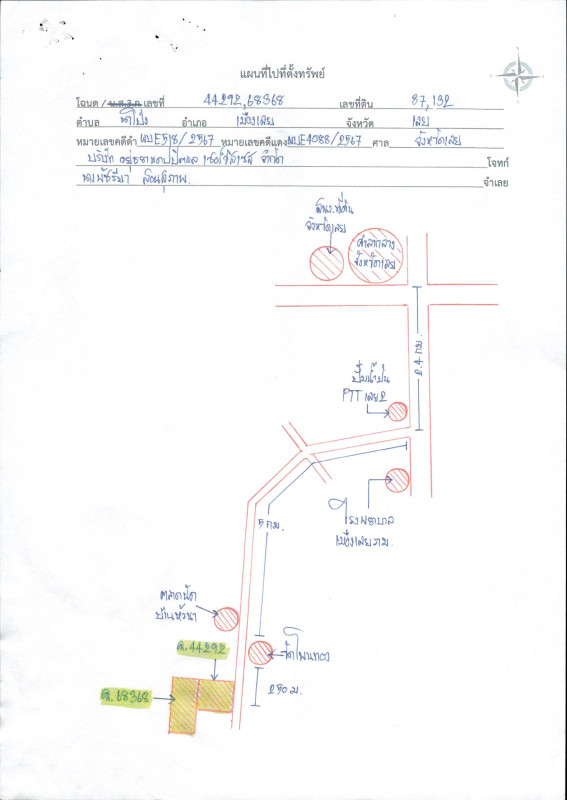 แผนที่ไปที่ตั้งทรัพย์
โฉนด / น.ส.3 ก เลขที่ 44292,68368 เลขที่ดิน 87,132
ตำบล นาโป่ง อำเภอ เมืองเลย จังหวัด เลย
หมายเลขคดีดำ ผบE518/2567 หมายเลขคดีแดง ผบE4088/2567 ศาล จังหวัดเลย
บริษัท อยุธยาแคปปิตอล เซอร์วิสเซส จำกัด โจทก์
จำเลย
จังหวัดเลย
ศาลากลาง
จังหวัดเลย
2.4 กม.
ปั๊มน้ำมัน
PTT เลย 2
5 กม.
โรงพยาบาล
เมืองเลยราม
ตลาดนัด
บ้านหัวนา
ฉ.44292
วัดโพนทอง
ฉ.68368
250 ม.